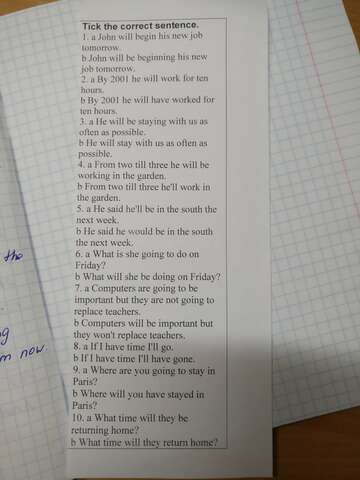 Tick the correct sentence.
1. a John will begin his new job
tomorrow.
b John will be beginning his new
job tomorrow.
2. a By 2001 he will work for ten
hours.
b By 2001 he will have worked for
ten hours.
3. a He will be staying with us as
often as possible.
b He will stay with us as often as
possible.
4. a From two till three he will be
working in the garden.
b From two till three he'll work in
the garden.
5. a He said he'll be in the south the
next week.
b He said he would be in the south
the next week.
6. a What is she going to do on
Friday?
b What will she be doing on Friday?
7. a Computers are going to be
important but they are not going to
replace teachers.
b Computers will be important but
they won't replace teachers.
8. a If I have time I'll go.
b If I have time I'll have gone.
9. a Where are you going to stay in
Paris?
b Where will you have stayed in
Paris?
10. a What time will they be
returning home?
b What time will they return home?
the
now.